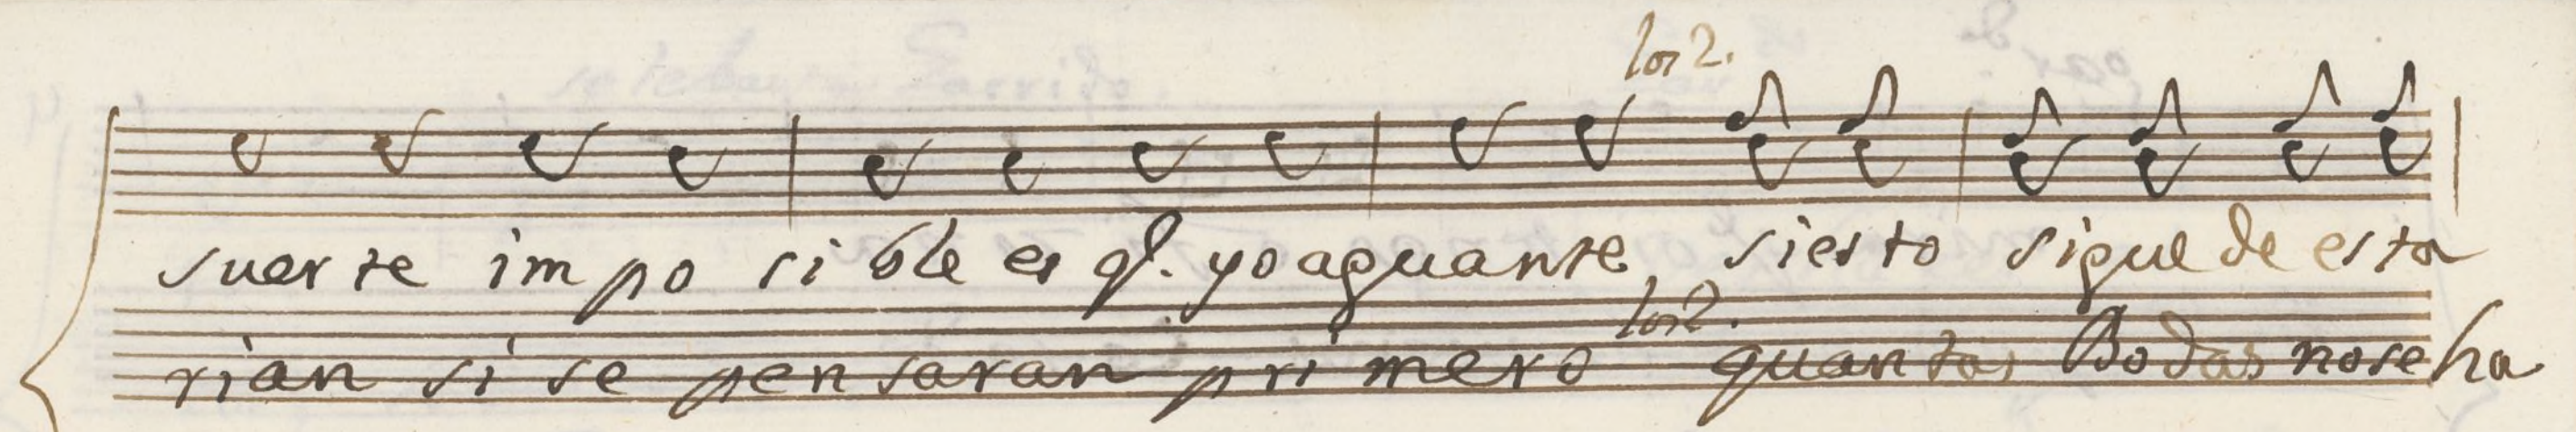 los 2.
suer te im po si ble es q. yo aguante siesto sigue de esta
los 2.
rian si se pen saran pri mero quantas Bodas no se ha